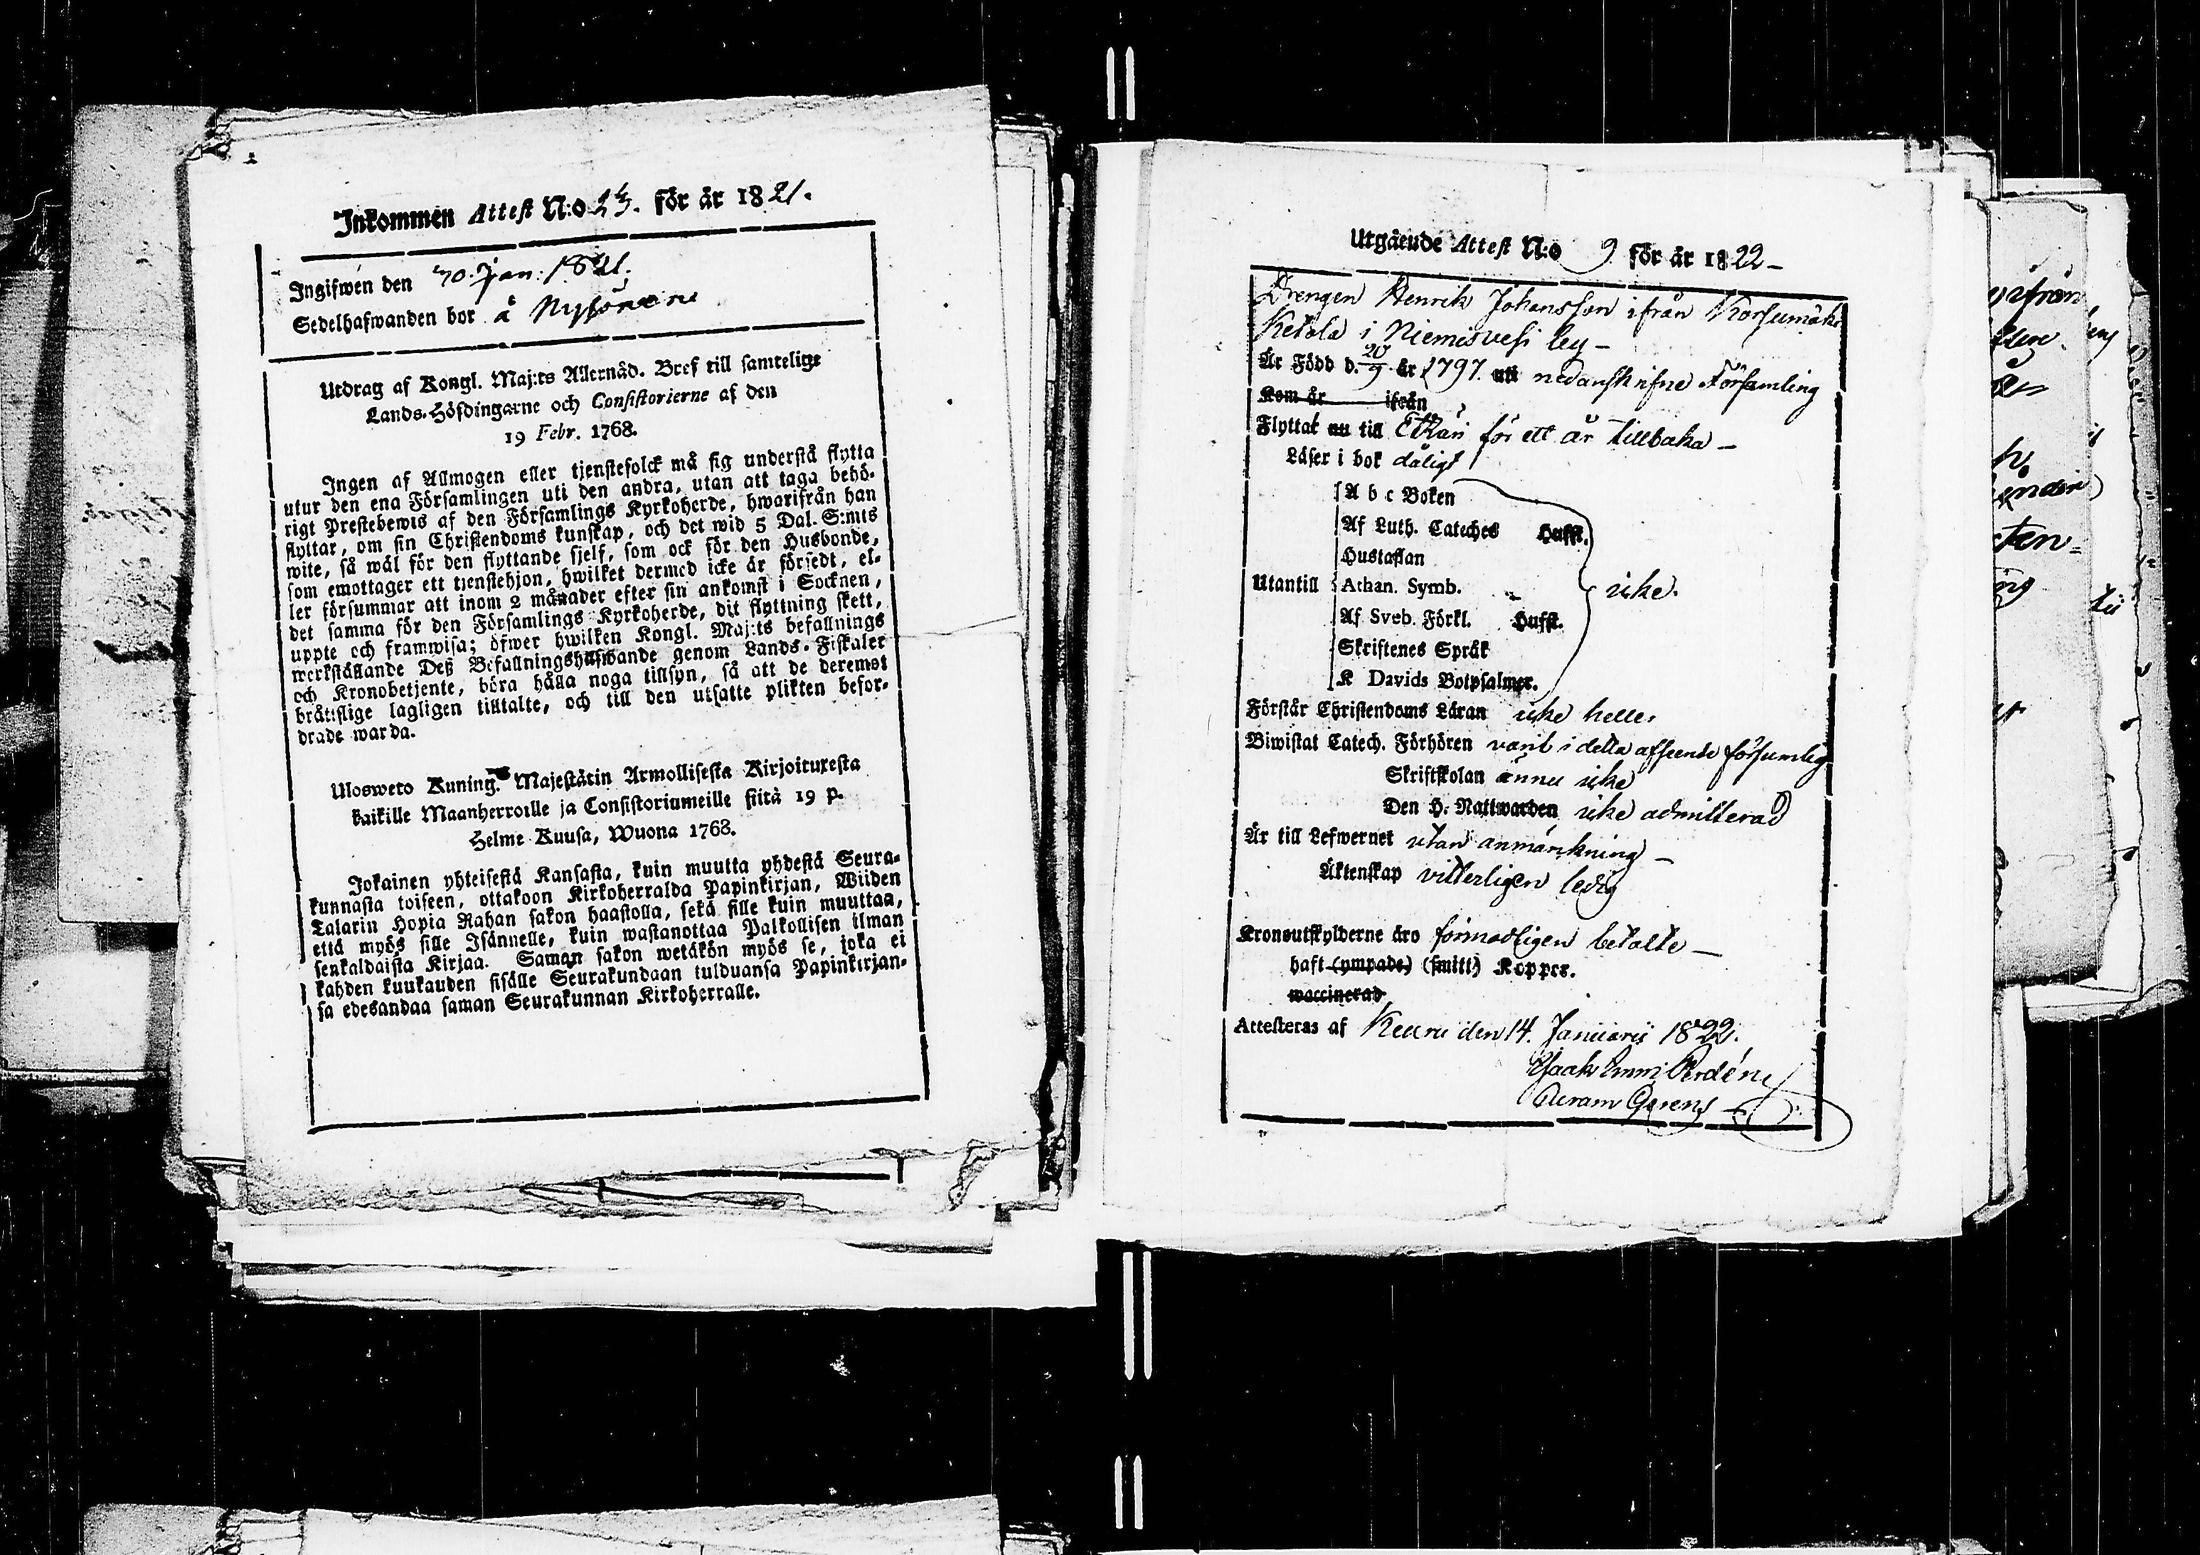 Inkommen Attest N:o 23. för år 1821.
Ingifwen den 30. Jan: 1821.
Sedelhafwanden bor å
Utdrag af Kongl. Maj:ts Allernåd. Bref till samtelige
Lands-Höfdingarne och Consistorierne af den
19 Febr. 1768.
Ingen af Allmogen eller tjenstefolck må sig understå flytta
utur den ena Församlingen uti den andra, utan att taga behö-
rigt Prestebewis af den Församlings Kyrkoherde, hwarifrån han
flyttar, om sin Christendoms kunskap, och det wid 5 Dal. S:mts
wite, så wäl för den flyttande sjelf, som ock för den Husbonde,
som emottager ett tjenstehjon, hwilket dermed icke är försedt, el-
ler försummar att inom 2 månader efter sin ankomst i Socknen,
det samma för den Församlings Kyrkoherde, dit flyttning skett,
uppte och framwisa; öfwer hwilken Kongl. Maj:ts befallnings
werkställande Deß Befallningshafwande genom Lands-Fiskaler
och Kronobetjente, böra hålla noga tillsyn, så att de deremot
bråttslige lagligen tilltalte, och till den utsatte plikten befor-
drade warda.
Ulosweto Kuning. Majestätin Armollisesta Kirjoituxesta
kaikille Maanherroille ja Consistoriumeille siitä 19 p.
Helme Kuusa, Wuona 1768.
Jokainen yhteisestä Kansasta, kuin muutta yhdestä Seura-
kunnasta toiseen, ottakoon Kirkoherralda Papinkirjan, Wiiden
Talarin Hopia Rahan sakon haastolla, sekä sille kuin muuttaa,
että myös sille Isännelle, kuin wastanottaa Palkollisen ilman
senkaldaista Kirjaa. Saman sakon wetäkön myös se, joka ei
kahden kuukauden sisälle Seurakundaan tulduansa Papinkirjan-
sa edesandaa saman Seurakunnan Kirkoherralle.
Utgående Attest N:o 9 för år 1822 –
Drengen Henrik Johansson ifrån Korsumäki
Ketola i Niemisvesi by –
Är Född d. 20/9 år 1797. uti nedanskrifne Församling
Kom år ifrån
Flyttat nu till Etsäri för ett år tillbaka –
Läser i bok dåligt
A b c Boken
Af Luth. Cateches Hufst.
Hustaflan
Utantill Athan. Symb. icke.
Af Sveb. Förkl. Hufst.
Skriftenes Språk
K Davids Botpsalmer.
Förstår Christendoms Läran icke heller
Biwistat Catech. Förhören varit i detta afseende försumlig
Skriftskolan ännu icke
Den H. Nattwarden icke admitterad
Är till Lefwernet utan anmärkning –
Äktenskap vitterligen ledig
Kronoutskylderne äro förmodligen betalte –
haft (ympade) (smitt) Koppor.
waccinerad
Attesteras af Keuru den 14. Januarii 1822.